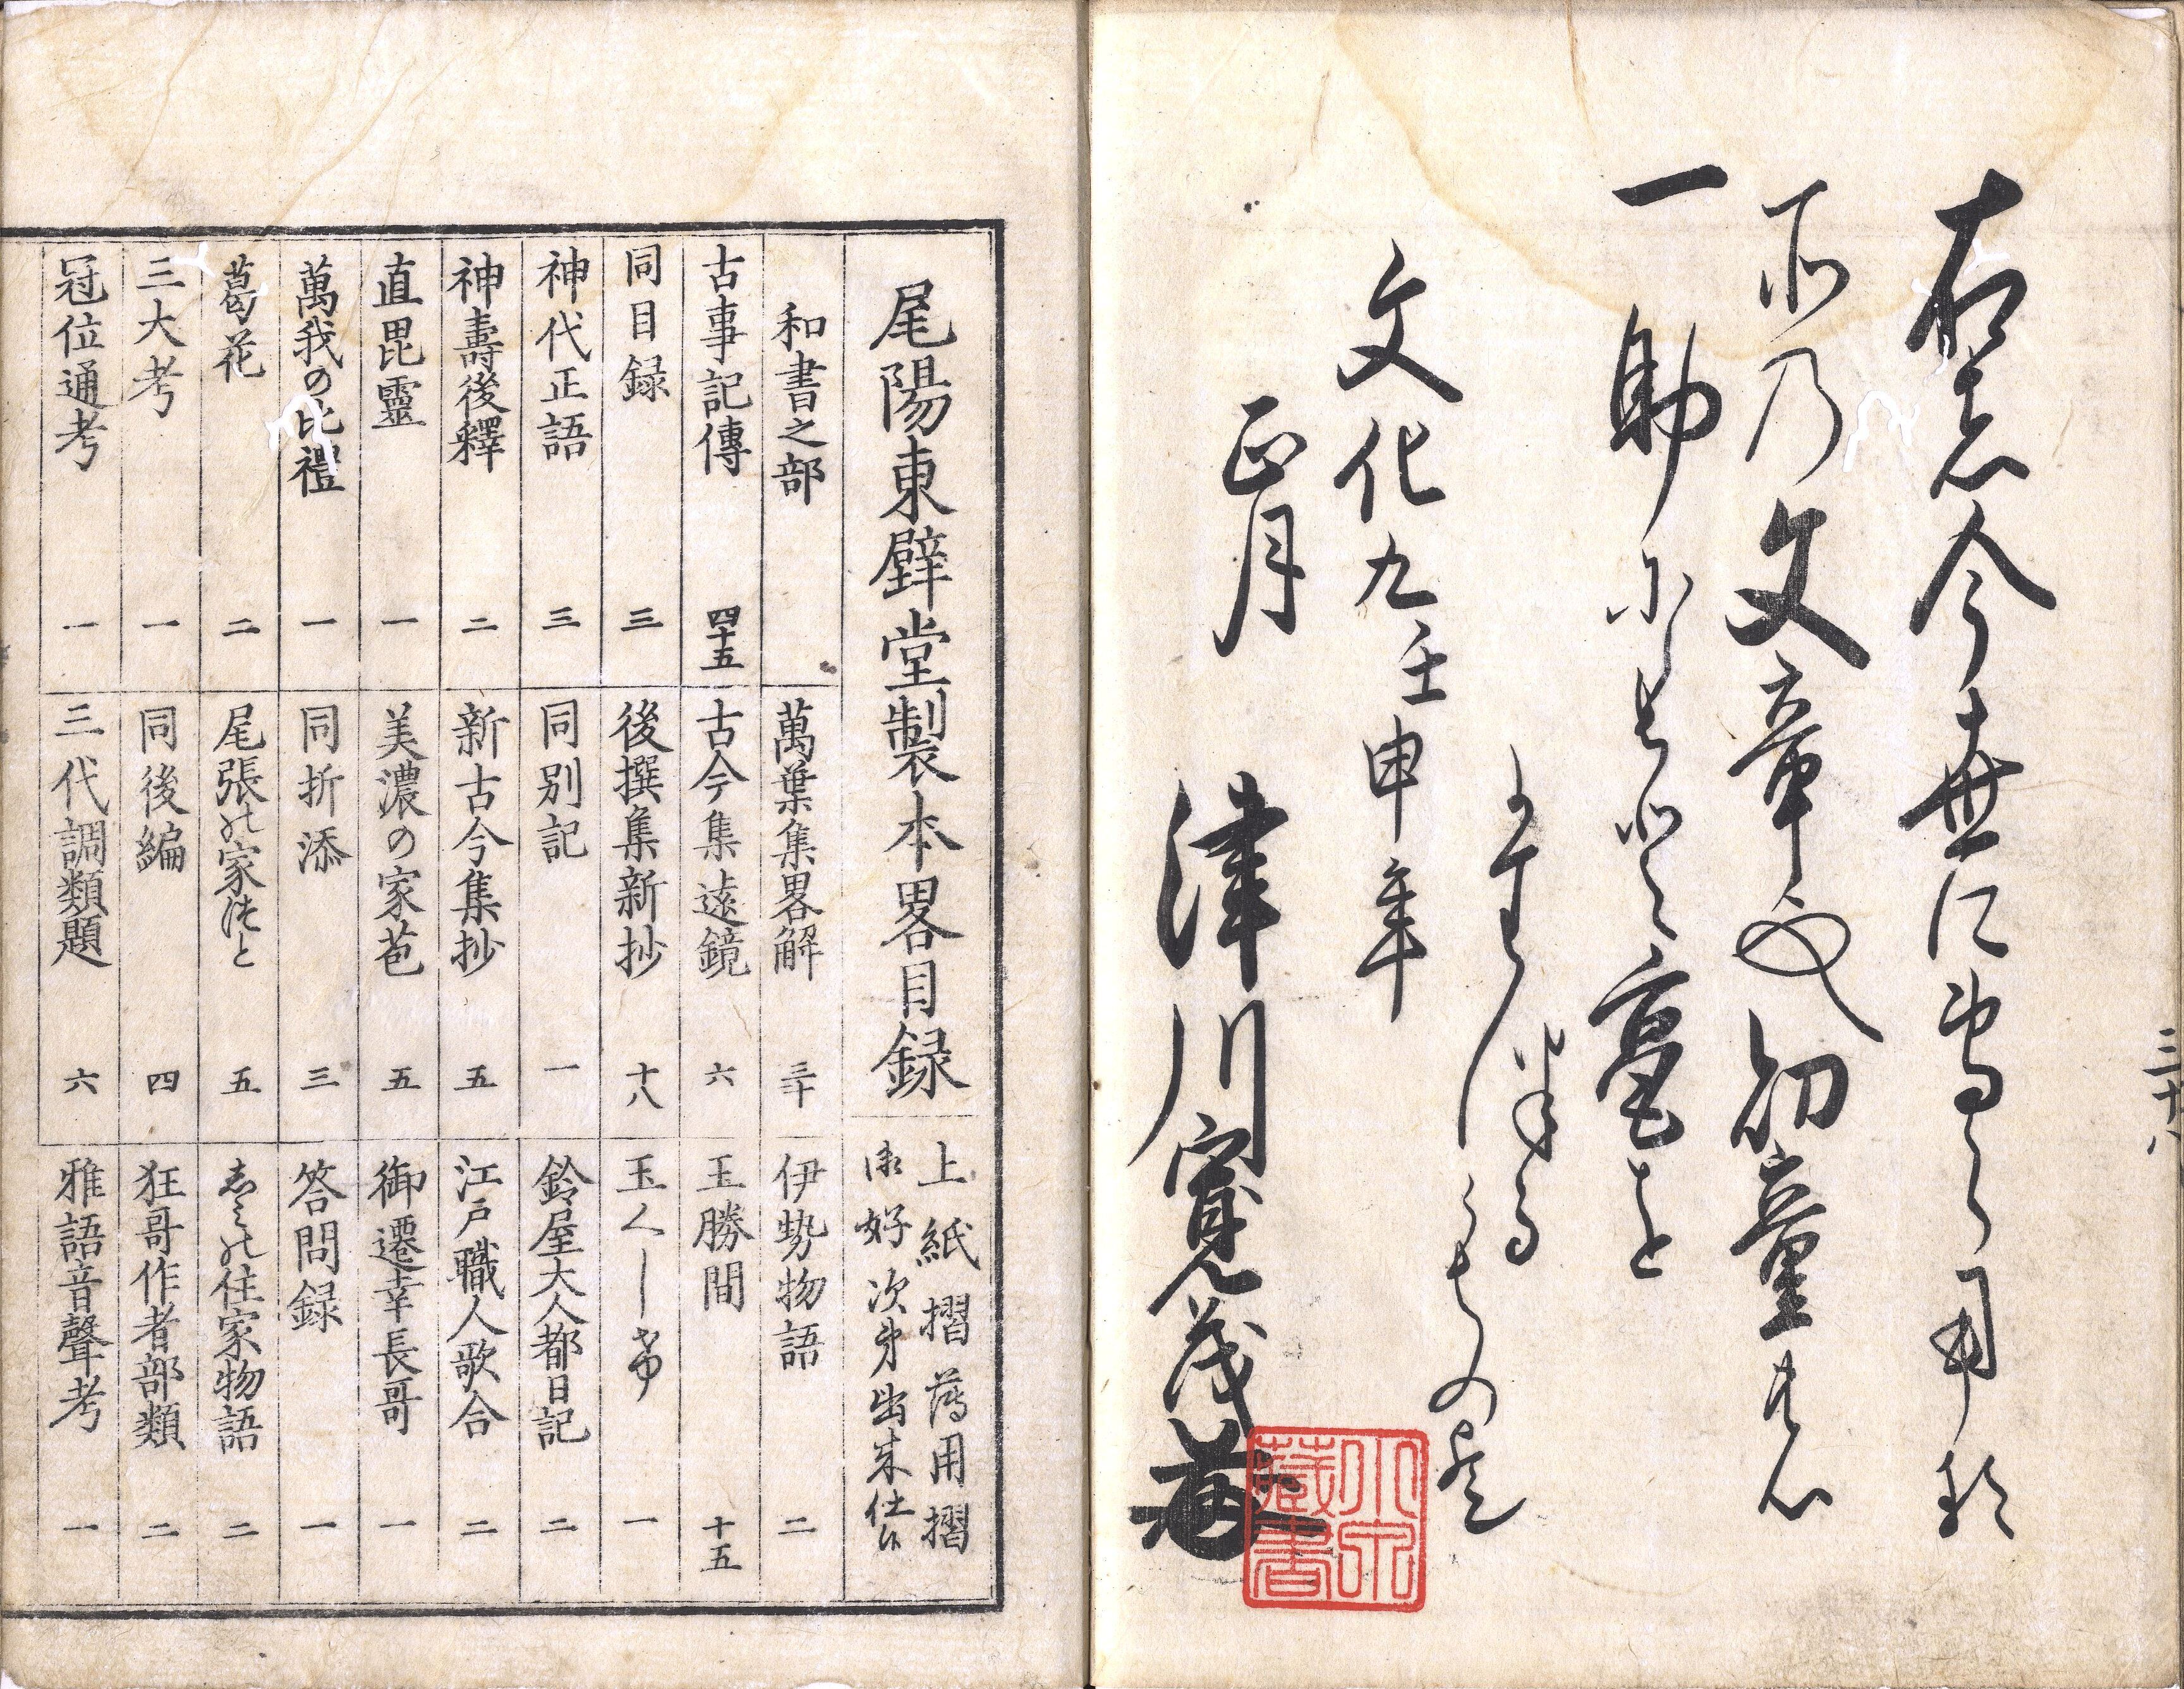 三十八
右者今世に
所乃文章
幼童
一助
文化九壬申年
正月
津川寛茂
尾陽東壁堂製本畧目録
上紙摺薄用摺
御好次第出来仕候
和書之部
萬葉集畧解 三十
伊勢物語 二
古事記傳 四十五
古今集遠鏡 六
玉勝間 十五
同目録 三
後撰集新抄 十八
玉くしげ 一
神代正語 三
同別記 一
鈴屋大人都日記 二
神壽後釋 二
新古今集抄 五
江戸職人歌合 二
直毘靈 一
美濃の家苞 五
御遷幸長哥 一
萬我の比禮 一
同折添 三
答問録 一
葛花 二
尾張の家つと 五
志みの住家物語 二
三大考 一
同後編 四
狂哥作者部類 二
冠位通考 一
三代調類題 六
雅語音聲考 一